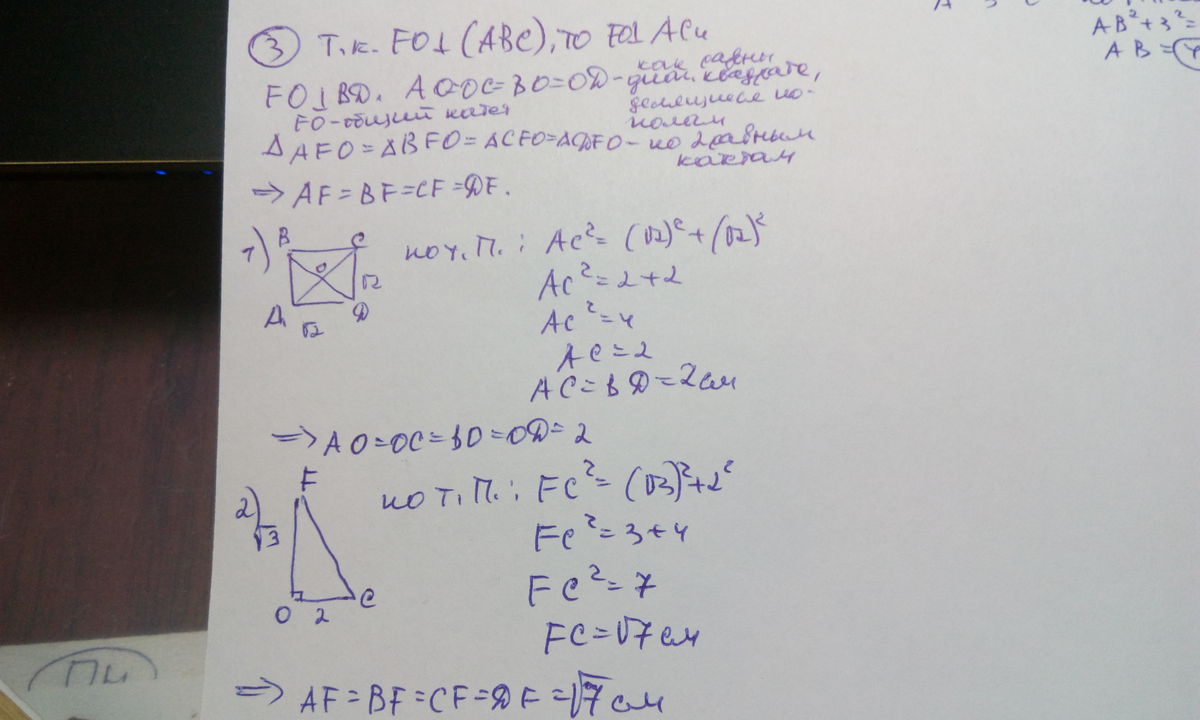 ③ Т.к. FO⊥(ABC), то FO⊥AC и
FO⊥BD. AO=OC=BO=OD - как равны
диаг. квадрата,
делящиеся по-
полам
FO - общий катет
ΔAFO = ΔBFO = ΔCFO = ΔDFO - по 2 равным
катетам
=> AF = BF = CF = DF.
1) B C
O
√2
A √2 D
по т. П.: AC² = (√2)² + (√2)²
AC² = 2 + 2
AC² = 4
AC = 2
AC = BD = 2 см
=> AO = OC = BO = OD = 2
2) F
√3
O 2 C
по т. П.: FC² = (√3)² + 2²
FC² = 3 + 4
FC² = 7
FC = √7 см
=> AF = BF = CF = DF = √7 см
AB² + 3² =
AB =
ПМ